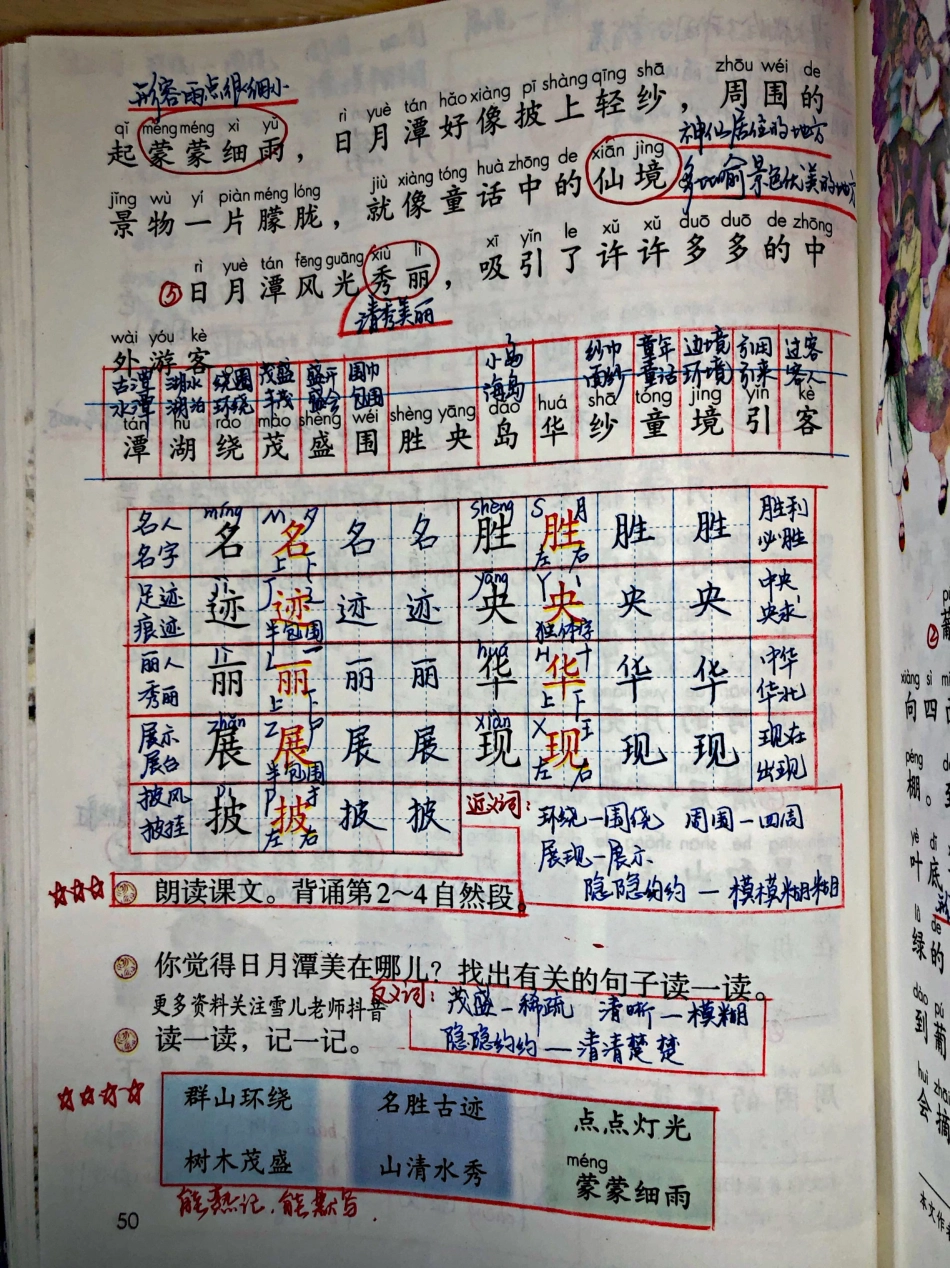 形容雨点很细小
qǐ méng méng xì yǔ rì yuè tán hǎo xiàng pī shàng qīng shā zhōu wéi de
起蒙蒙细雨，日月潭好像披上轻纱，周围的
神仙居住的地方
jǐng wù yí piàn méng lóng jiù xiàng tóng huà zhōng de xiān jìng
景物一片朦胧，就像童话中的仙境
多比喻景色优美的地方
rì yuè tán fēng guāng xiù lì xī yǐn le xǔ xǔ duō duō de zhōng
⑤日月潭风光秀丽，吸引了许许多多的中
清秀美丽
wài yóu kè
外游客
古潭 湖水 绕圈 茂盛 盛开 围巾 小岛 纱巾 童年 边境 引用 过客
水潭 湖泊 环绕 丰茂 盛会 包围 海岛 面纱 童话 环境 引来 客人
tán hú rào mào shèng wéi shèng yāng dǎo huá shā tóng jìng yǐn kè
潭 湖 绕 茂 盛 围 胜 央 岛 华 纱 童 境 引 客
míng M 夕 shèng S 月
名人 名 名 名 名 胜 胜 胜 胜 胜利
名字 上 下 左 右 必胜
足迹 迹 迹 迹 迹 央 央 央 央 中央
痕迹 半包围 独体字 央求
丽人 丽 丽 丽 丽 华 华 华 华 中华
秀丽 上 下 上 下 华北
zhǎn Z 尸 xiàn X 王
展示 展 展 展 展 现 现 现 现 现在
展台 半包围 左 右 出现
pī P 扌
披风 披 披 披 披
披挂 左 右
近义词：
环绕—围绕 周围—四周
展现—展示
隐隐约约—模模糊糊
朗读课文。背诵第2~4自然段。
你觉得日月潭美在哪儿？找出有关的句子读一读。
更多资料关注雪儿老师抖音
反义词：
茂盛—稀疏 清晰—模糊
隐隐约约—清清楚楚
读一读，记一记。
群山环绕 名胜古迹 点点灯光
树木茂盛 山清水秀 méng
蒙蒙细雨
能熟记，能默写.
50
②
xiàng sì
向四
péng
棚。
yè dǐ
叶底
lǜ de
绿的
dào pú
到葡
huì zhāi
会摘
本文作者